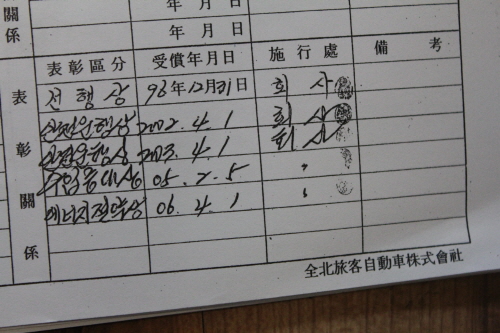 年 月 日
係 年 月 日
表彰區分 受償年月日 施行處 備考
表彰關係
선행상 96年12月31日 회사
안전운행상 2002. 4. 1 회사
안전운행상 2003. 4. 1 회사
05. 2. 5 〃
에너지절약상 06. 4. 1 〃
全北旅客自動車株式會社